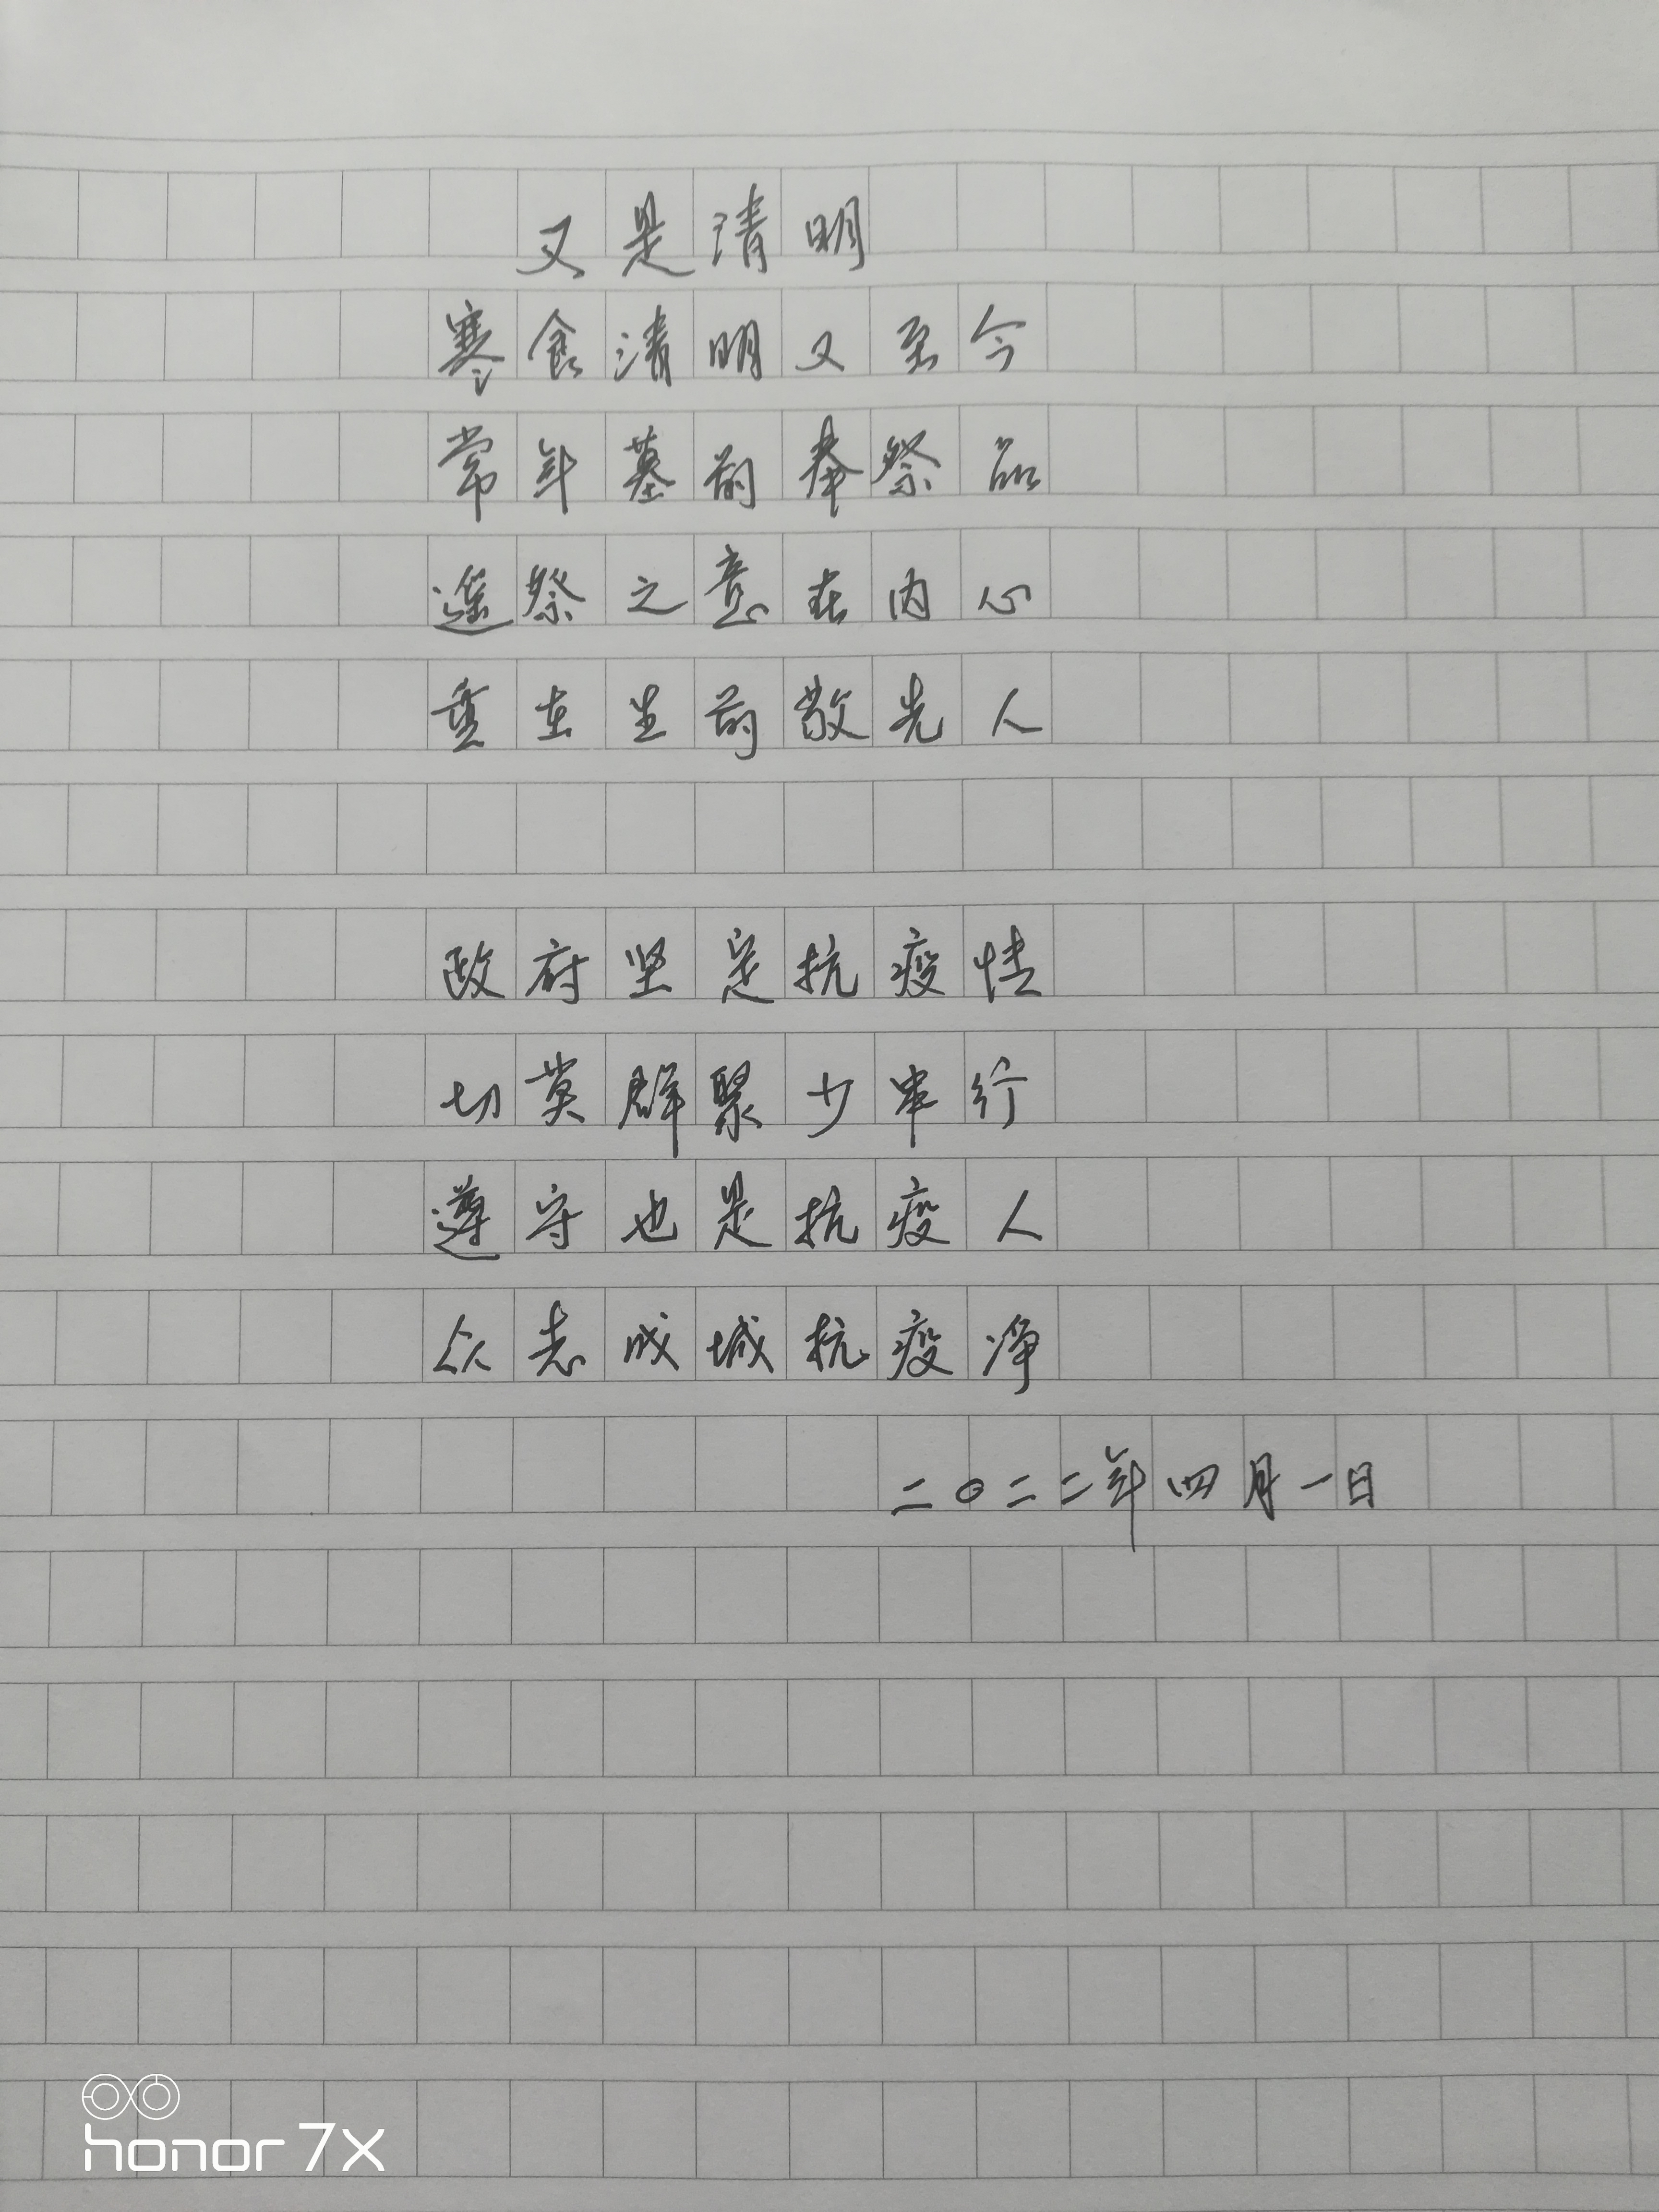 又是清明
寒食清明又至今
常年墓前奉祭品
遥祭之意在内心
重在生前敬先人
政府坚定抗疫情
切莫群聚少串行
遵守也是抗疫人
众志成城抗疫净
二〇二二年四月一日
honor 7X